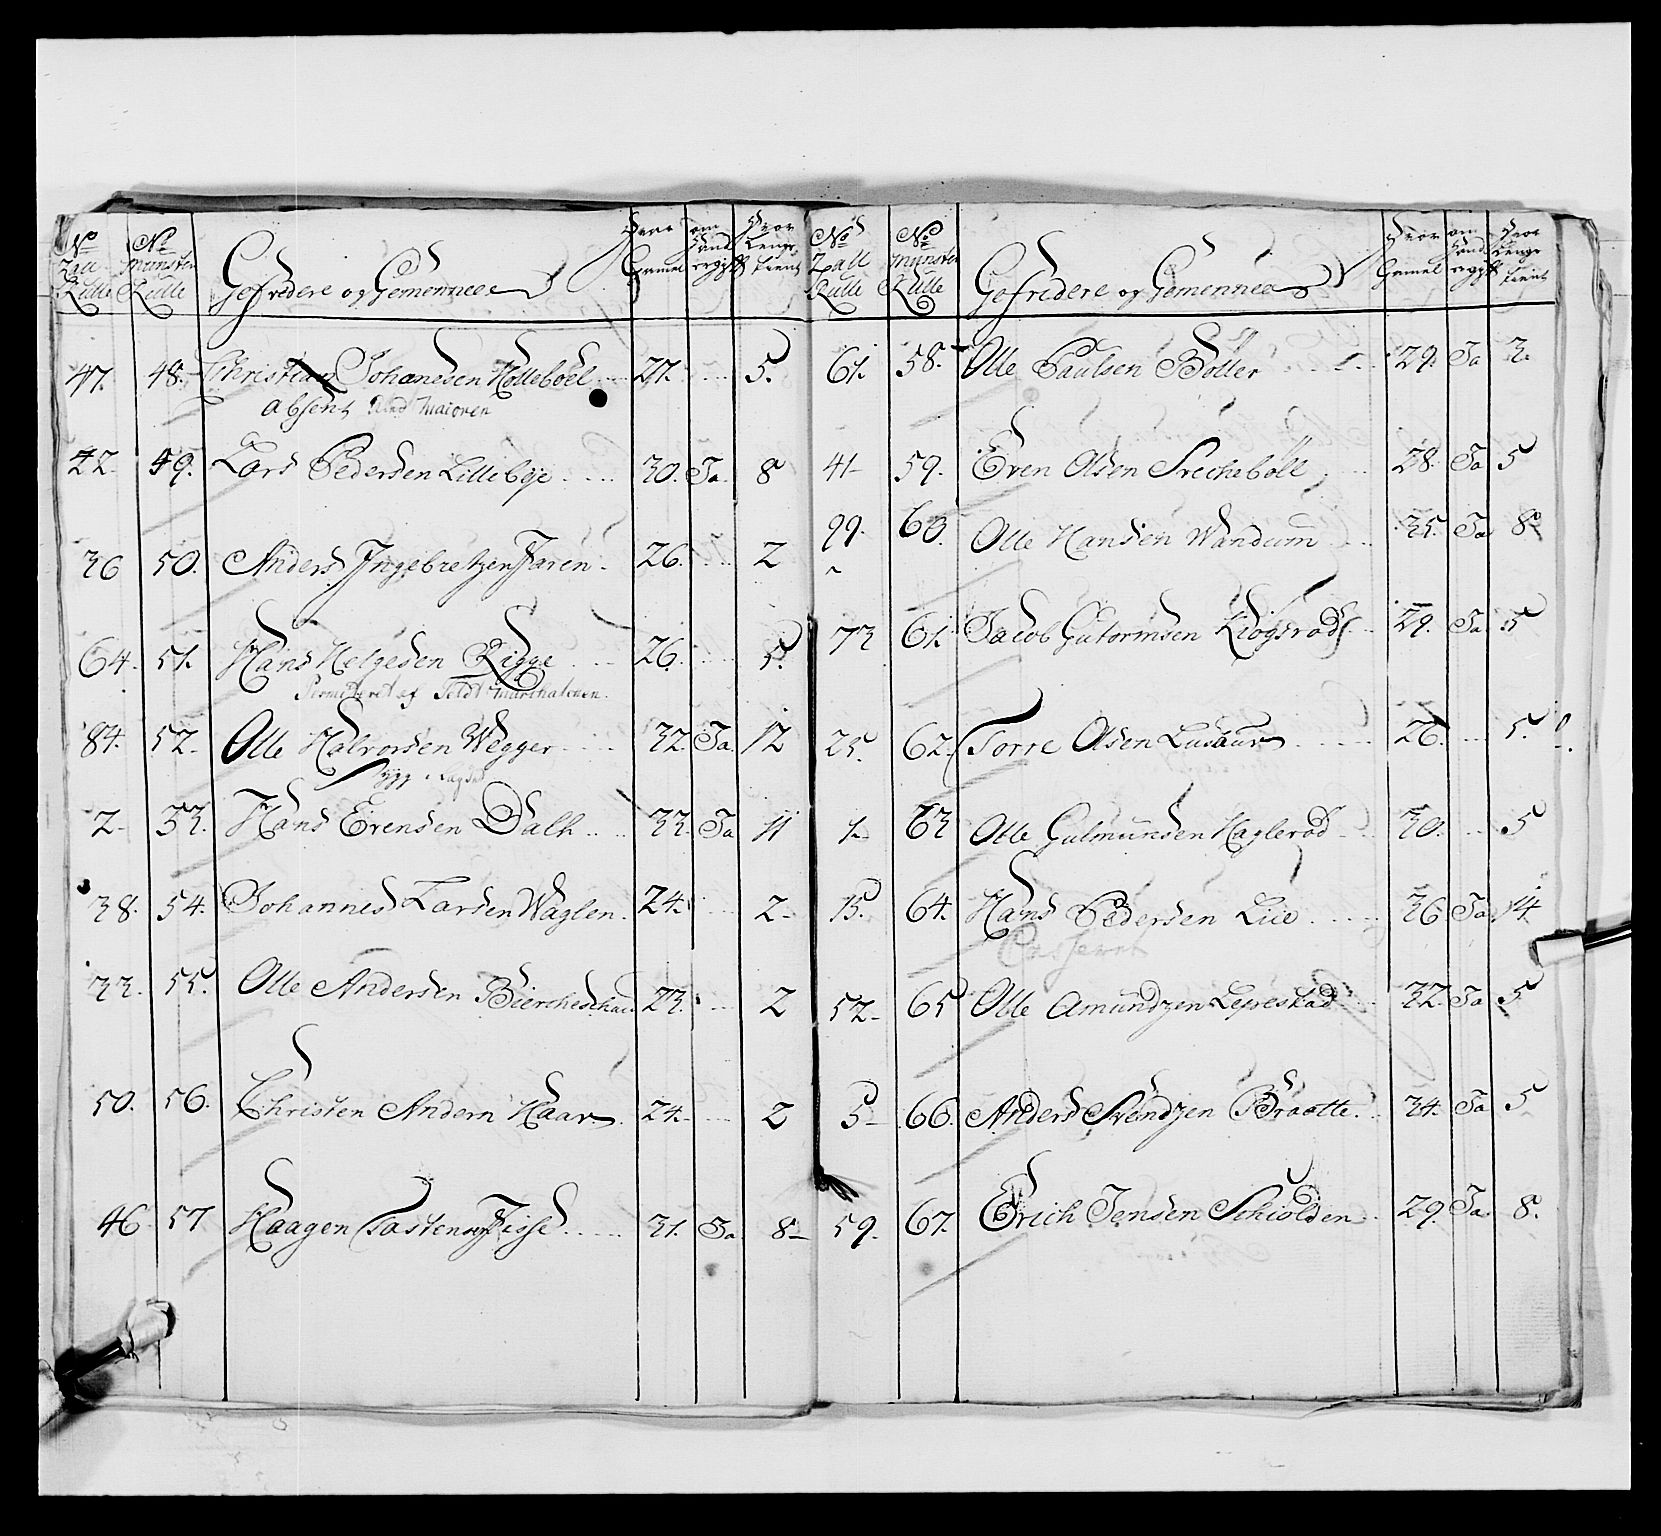 No Zall Rulle | No Mynster Rulle | Gefredere og Gemennee | Hvor Gamel | om Hand ergift | Hvor Lenge tient
47. 48. Christian Johanesen Holleboel 27. 5.
absent ved Maioren
22 49. Lars Pedersen Lilleboe 30. Ja 8
36 50. Anders Ingebretzen Faren 26. 2
64. 51. Hans Helgesen Rigge 26. 5.
Permiteret af Feldt Marshalchen
84. 52. Olle Halvorsen Wegger 32. Ja. 12
Sygg
2 53. Hans Evensen Dalh 33. Ja 11
38. 54. Johannes Larsen Waglen. 24. 2
33. 55. Olle Andersen 23. 2
50. 56. Christen Andern Haar 24. 2
46 57 Haagen Tastensen Fisse 31. Ja. 8
No Zall Rulle | No Mynster Rulle | Gefredere og Gemennee | Hvor Gamel | om Hand ergift | Hvor Lenge tient
61. 58. Olle Paulsen Böller 29. Ja 3.
41 59. Even Olsen Srecheböll 28. Ja 5
99. 60. Olle Hansen Wandum 35. Ja 8
73 61. Jacob Gutormsen Kiogsrod 29. Ja 5
25. 62. Torre Olsen Lusaur 26. 5.
1. 63 Olle Gulmundsen Haglerod 30. 5
15. 64. Hans Pedersen Lie 36 Ja 14.
Casseret
52 65 Olle Amundzen Leprestad 32. Ja 5
5 66. Anders Svendzen Braatte 34. Ja 5
59. 67. Erich Jensen Schiolden 29. Ja 8.